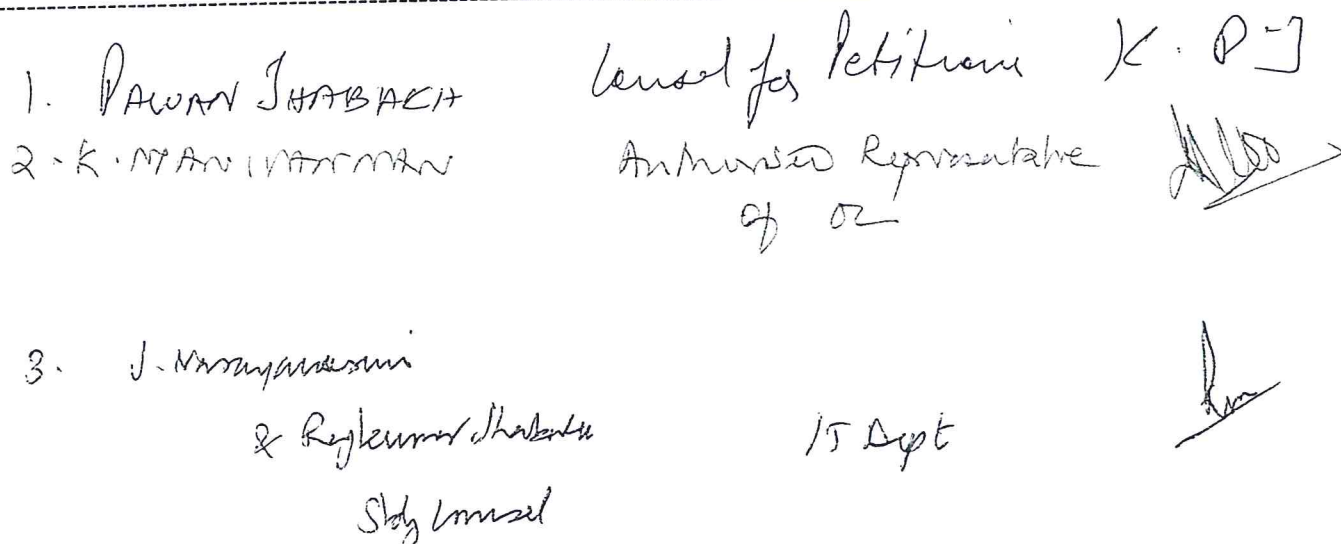 1. PAWAN JHABAKH Counsel for Petitioner K. P J
2. K. MANIVANNAN Authorised Representative
of OL
3. J. Narayanasami
& Rajkumar Jhabakh IT Dept
Stdg Counsel